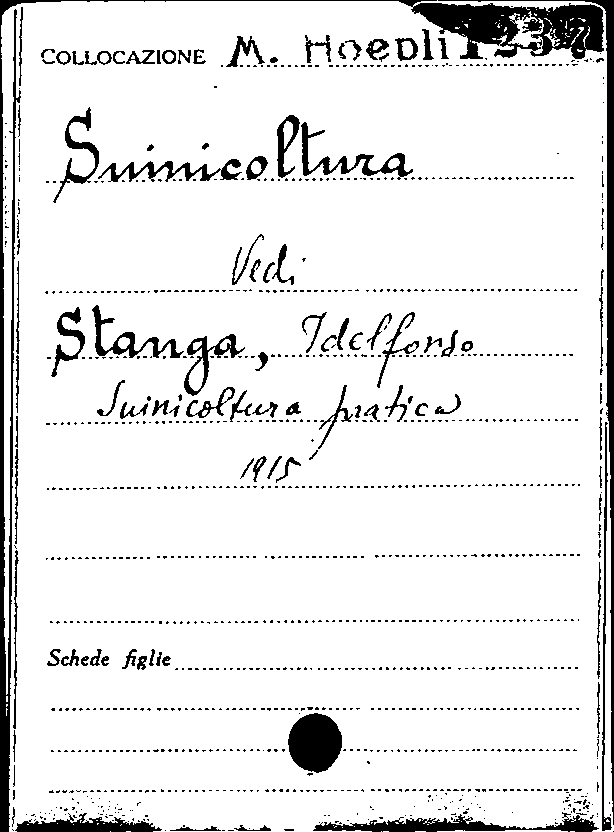 COLLOCAZIONE M. Hoepli 1237
Suinicoltura
Vedi
Stanga, Idelfonso
Suinicoltura pratica
1915
Schede figlie